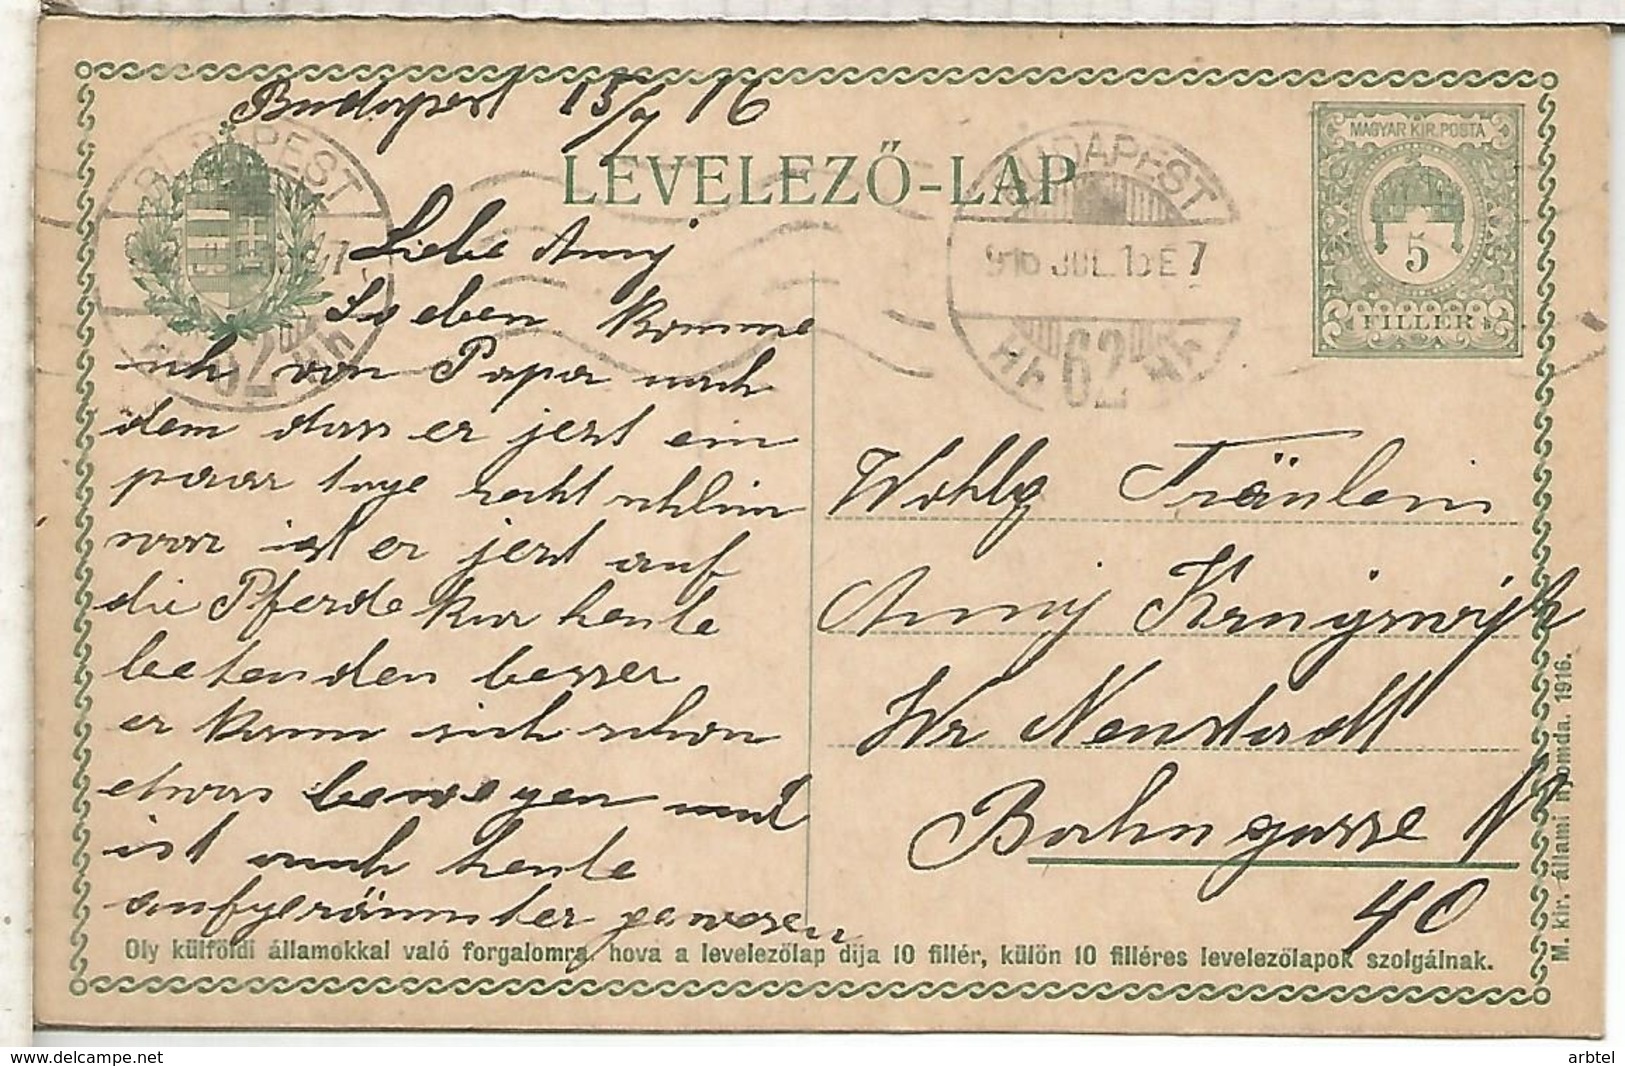 Budapest 15/7 16
LEVELEZŐ-LAP
MAGYAR KIR. POSTA
5
FILLÉR
BUDAPEST
62
BUDAPEST
916 JUL. 15 E 7
62
Liebe Anny
Soeben komme
ich von Papa nach
dem dass er jezt ein
paar tage recht schlim
war ist er jezt auf
die Pferdekur heute
betenden besser
er kann sich schon
etwas bewegen und
ist auch heute
aufgeräumter gewesen
Wohlg Fräulein
Anny
Wr Neustadt
Bahngasse N
40
Oly külföldi államokkal való forgalomra, hova a levelezőlap dija 10 fillér, külön 10 filléres levelezőlapok szolgálnak.
M. kir. állami nyomda. 1916.
www.delcampe.net
arbtel